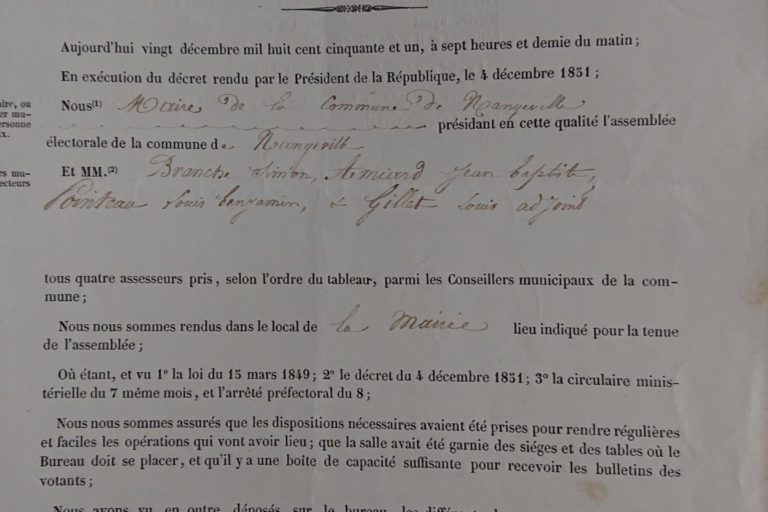 Aujourd'hui vingt décembre mil huit cent cinquante et un, à sept heures et demie du matin;
En exécution du décret rendu par le Président de la République, le 4 décembre 1851;
Nous(1) Maire de la Commune de Nangeville
présidant en cette qualité l'assemblée
électorale de la commune de Nangeville
Et MM.(2) Branche Simon, Amiard Jean baptiste,
Pointeau Louis benjamin, & Gillet Louis adjoint
tous quatre assesseurs pris, selon l'ordre du tableau, parmi les Conseillers municipaux de la com-
mune;
Nous nous sommes rendus dans le local de la Mairie lieu indiqué pour la tenue
de l'assemblée;
Où étant, et vu 1o la loi du 15 mars 1849; 2o le décret du 4 décembre 1851; 3o la circulaire minis-
térielle du 7 même mois, et l'arrêté préfectoral du 8;
Nous nous sommes assurés que les dispositions nécessaires avaient été prises pour rendre régulières
et faciles les opérations qui vont avoir lieu; que la salle avait été garnie des siéges et des tables où le
Bureau doit se placer, et qu'il y a une boîte de capacité suffisante pour recevoir les bulletins des
votants;
Nous avons vu en outre déposés sur le bureau les
aire, ou
er mu-
ersonne
ix.
rs mu-
ecteurs